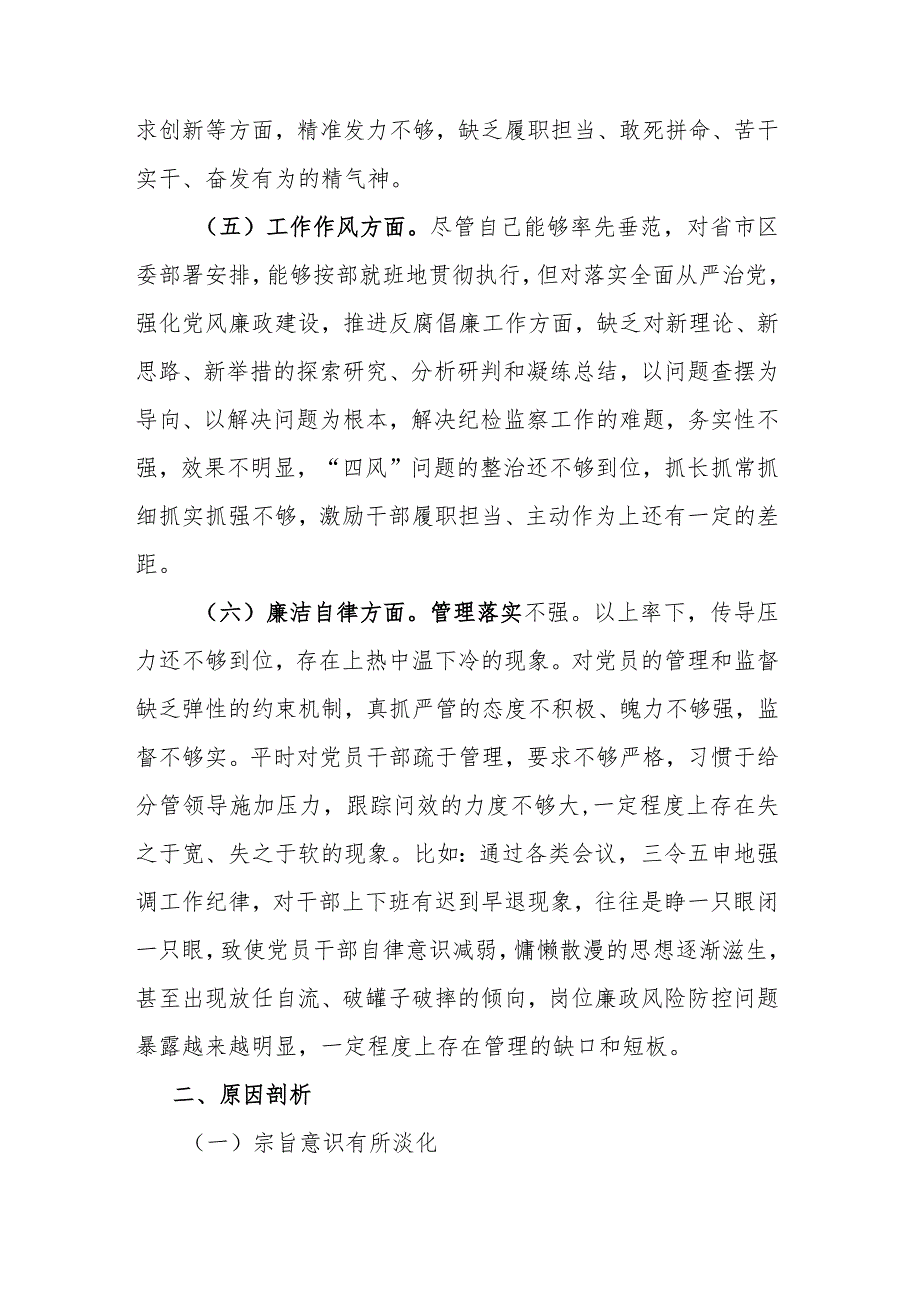 求创新等方面，精准发力不够，缺乏履职担当、敢死拼命、苦干
实干、奋发有为的精气神。
（五）工作作风方面。尽管自己能够率先垂范，对省市区
委部署安排，能够按部就班地贯彻执行，但对落实全面从严治党，
强化党风廉政建设，推进反腐倡廉工作方面，缺乏对新理论、新
思路、新举措的探索研究、分析研判和凝练总结，以问题查摆为
导向、以解决问题为根本，解决纪检监察工作的难题，务实性不
强，效果不明显，“四风”问题的整治还不够到位，抓长抓常抓
细抓实抓强不够，激励干部履职担当、主动作为上还有一定的差
距。
（六）廉洁自律方面。管理落实不强。以上率下，传导压
力还不够到位，存在上热中温下冷的现象。对党员的管理和监督
缺乏弹性的约束机制，真抓严管的态度不积极、魄力不够强，监
督不够实。平时对党员干部疏于管理，要求不够严格，习惯于给
分管领导施加压力，跟踪问效的力度不够大,一定程度上存在失
之于宽、失之于软的现象。比如：通过各类会议，三令五申地强
调工作纪律，对干部上下班有迟到早退现象，往往是睁一只眼闭
一只眼，致使党员干部自律意识减弱，慵懒散漫的思想逐渐滋生，
甚至出现放任自流、破罐子破摔的倾向，岗位廉政风险防控问题
暴露越来越明显，一定程度上存在管理的缺口和短板。
二、原因剖析
（一）宗旨意识有所淡化